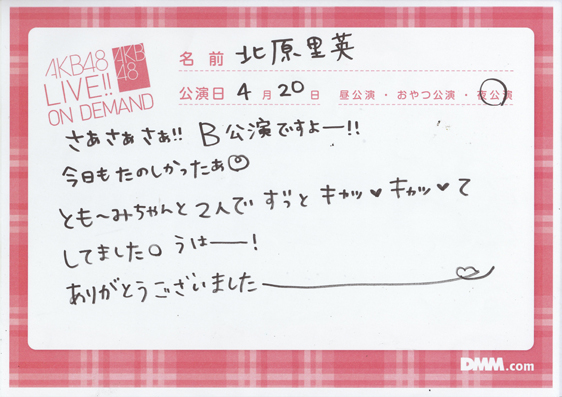 AKB48
LIVE!!
ON DEMAND
AKB
48
名前 北原里英
公演日 4月20日 昼公演・おやつ公演・夜公演
さぁさぁさぁ!! B公演ですよー!!
今日もたのしかったぁ
とも〜みちゃんと2人で ずっと キャッ♥キャッ♥て
してました。うはー!
ありがとうございました
DMM.com